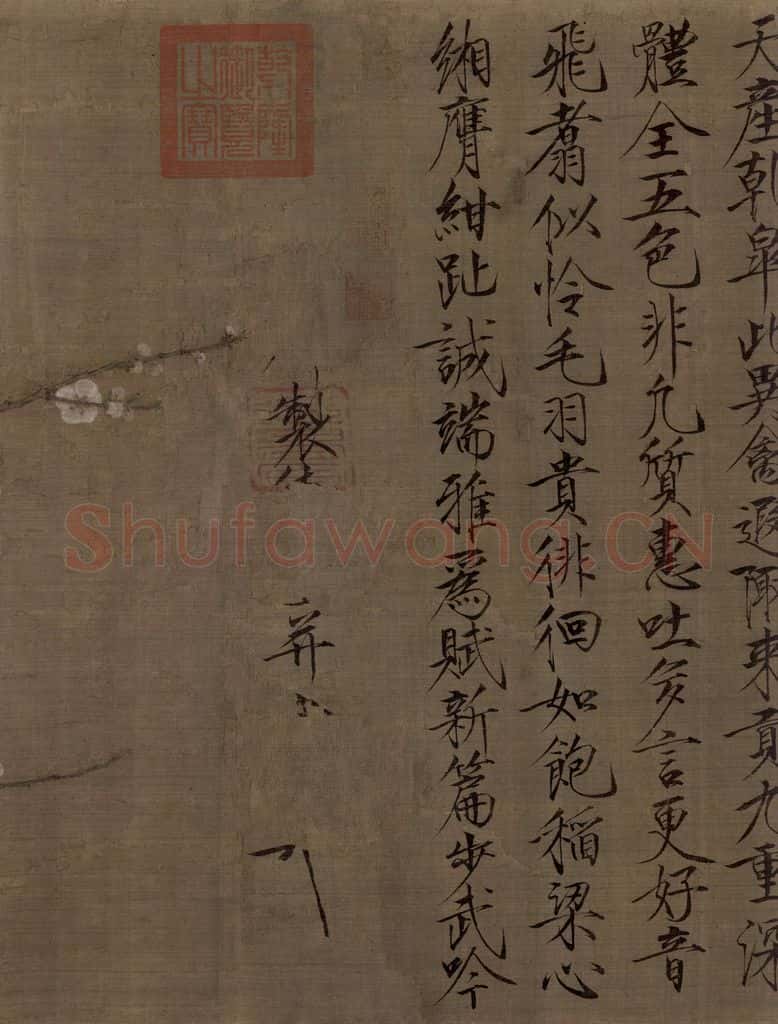 天產乾皐此異禽遐陬來貢九重深
體全五色非凡質惠吐多言更好音
飛翥似憐毛羽貴徘徊如飽稻粱心
緗膺紺趾誠端雅爲賦新篇步武吟
製
并
乾隆御覽之寶
Shufawang.CN